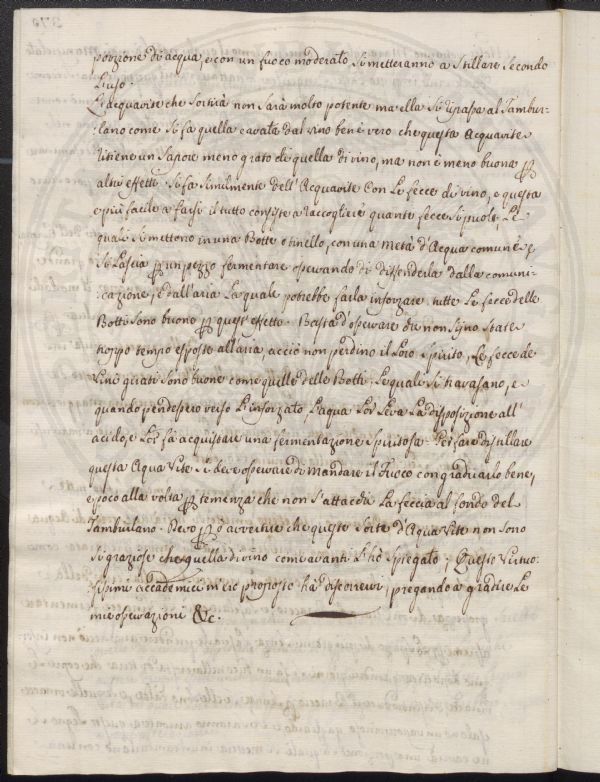 porzione di acqua, e con un fuoco moderato si metteranno a stillare secondo
l'uso.
L'acquavite che sortirà non sarà molto potente ma ella si ripassa al Tambur-
:lano come si fa quella cavata dal vino ben è vero che questa Acquavite
ritiene un sapore meno grato di quella di vino, ma non è meno buona ꝑ
altri effetti. Si fa similmente dell'Acquavite con le fecce di vino, e questa
e più facile a farsi il tutto consiste a raccogliere quante fecce si puole, le
quali si mettono in una Botte o tinello, con una metà d'Acqua comune e
si lascia ꝑ un pezzo fermentare osservando di diffenderla dalla comuni-
:cazione, e dall'aria la quale potrebbe farla inforzare. tutte le fecce delle
Botti sono buone ꝑ quest'effetto. Basta d'osservare che non sijno state
troppo tempo esposte all'aria, acciò non perdino il loro spirito, le fecce de
vini guasti sono buone come quelle delle Botti, le quali si travasano, e
quando pendessero verso l'inforzato, l'aqua lor leva la disposizione all'
acido, e lor fà acquistare una fermentazione spiritosa. Per fare distillare
questa Aqua Vite si deve osservare di mandare il fuoco con gradicarlo bene,
e poco alla volta ꝑ temenza che non s'attacchi la feccia al fondo del
Tamburlano. Devo ꝑ ò avvertire che queste sorte d'Aqua Vite non sono
si graziose che quella di vino come avanti l'hò spiegato; Questo Virtuo:
:sissimi accademici m'ero proposto ha discorrervi, pregando a gradire le
mie osservazioni &c.